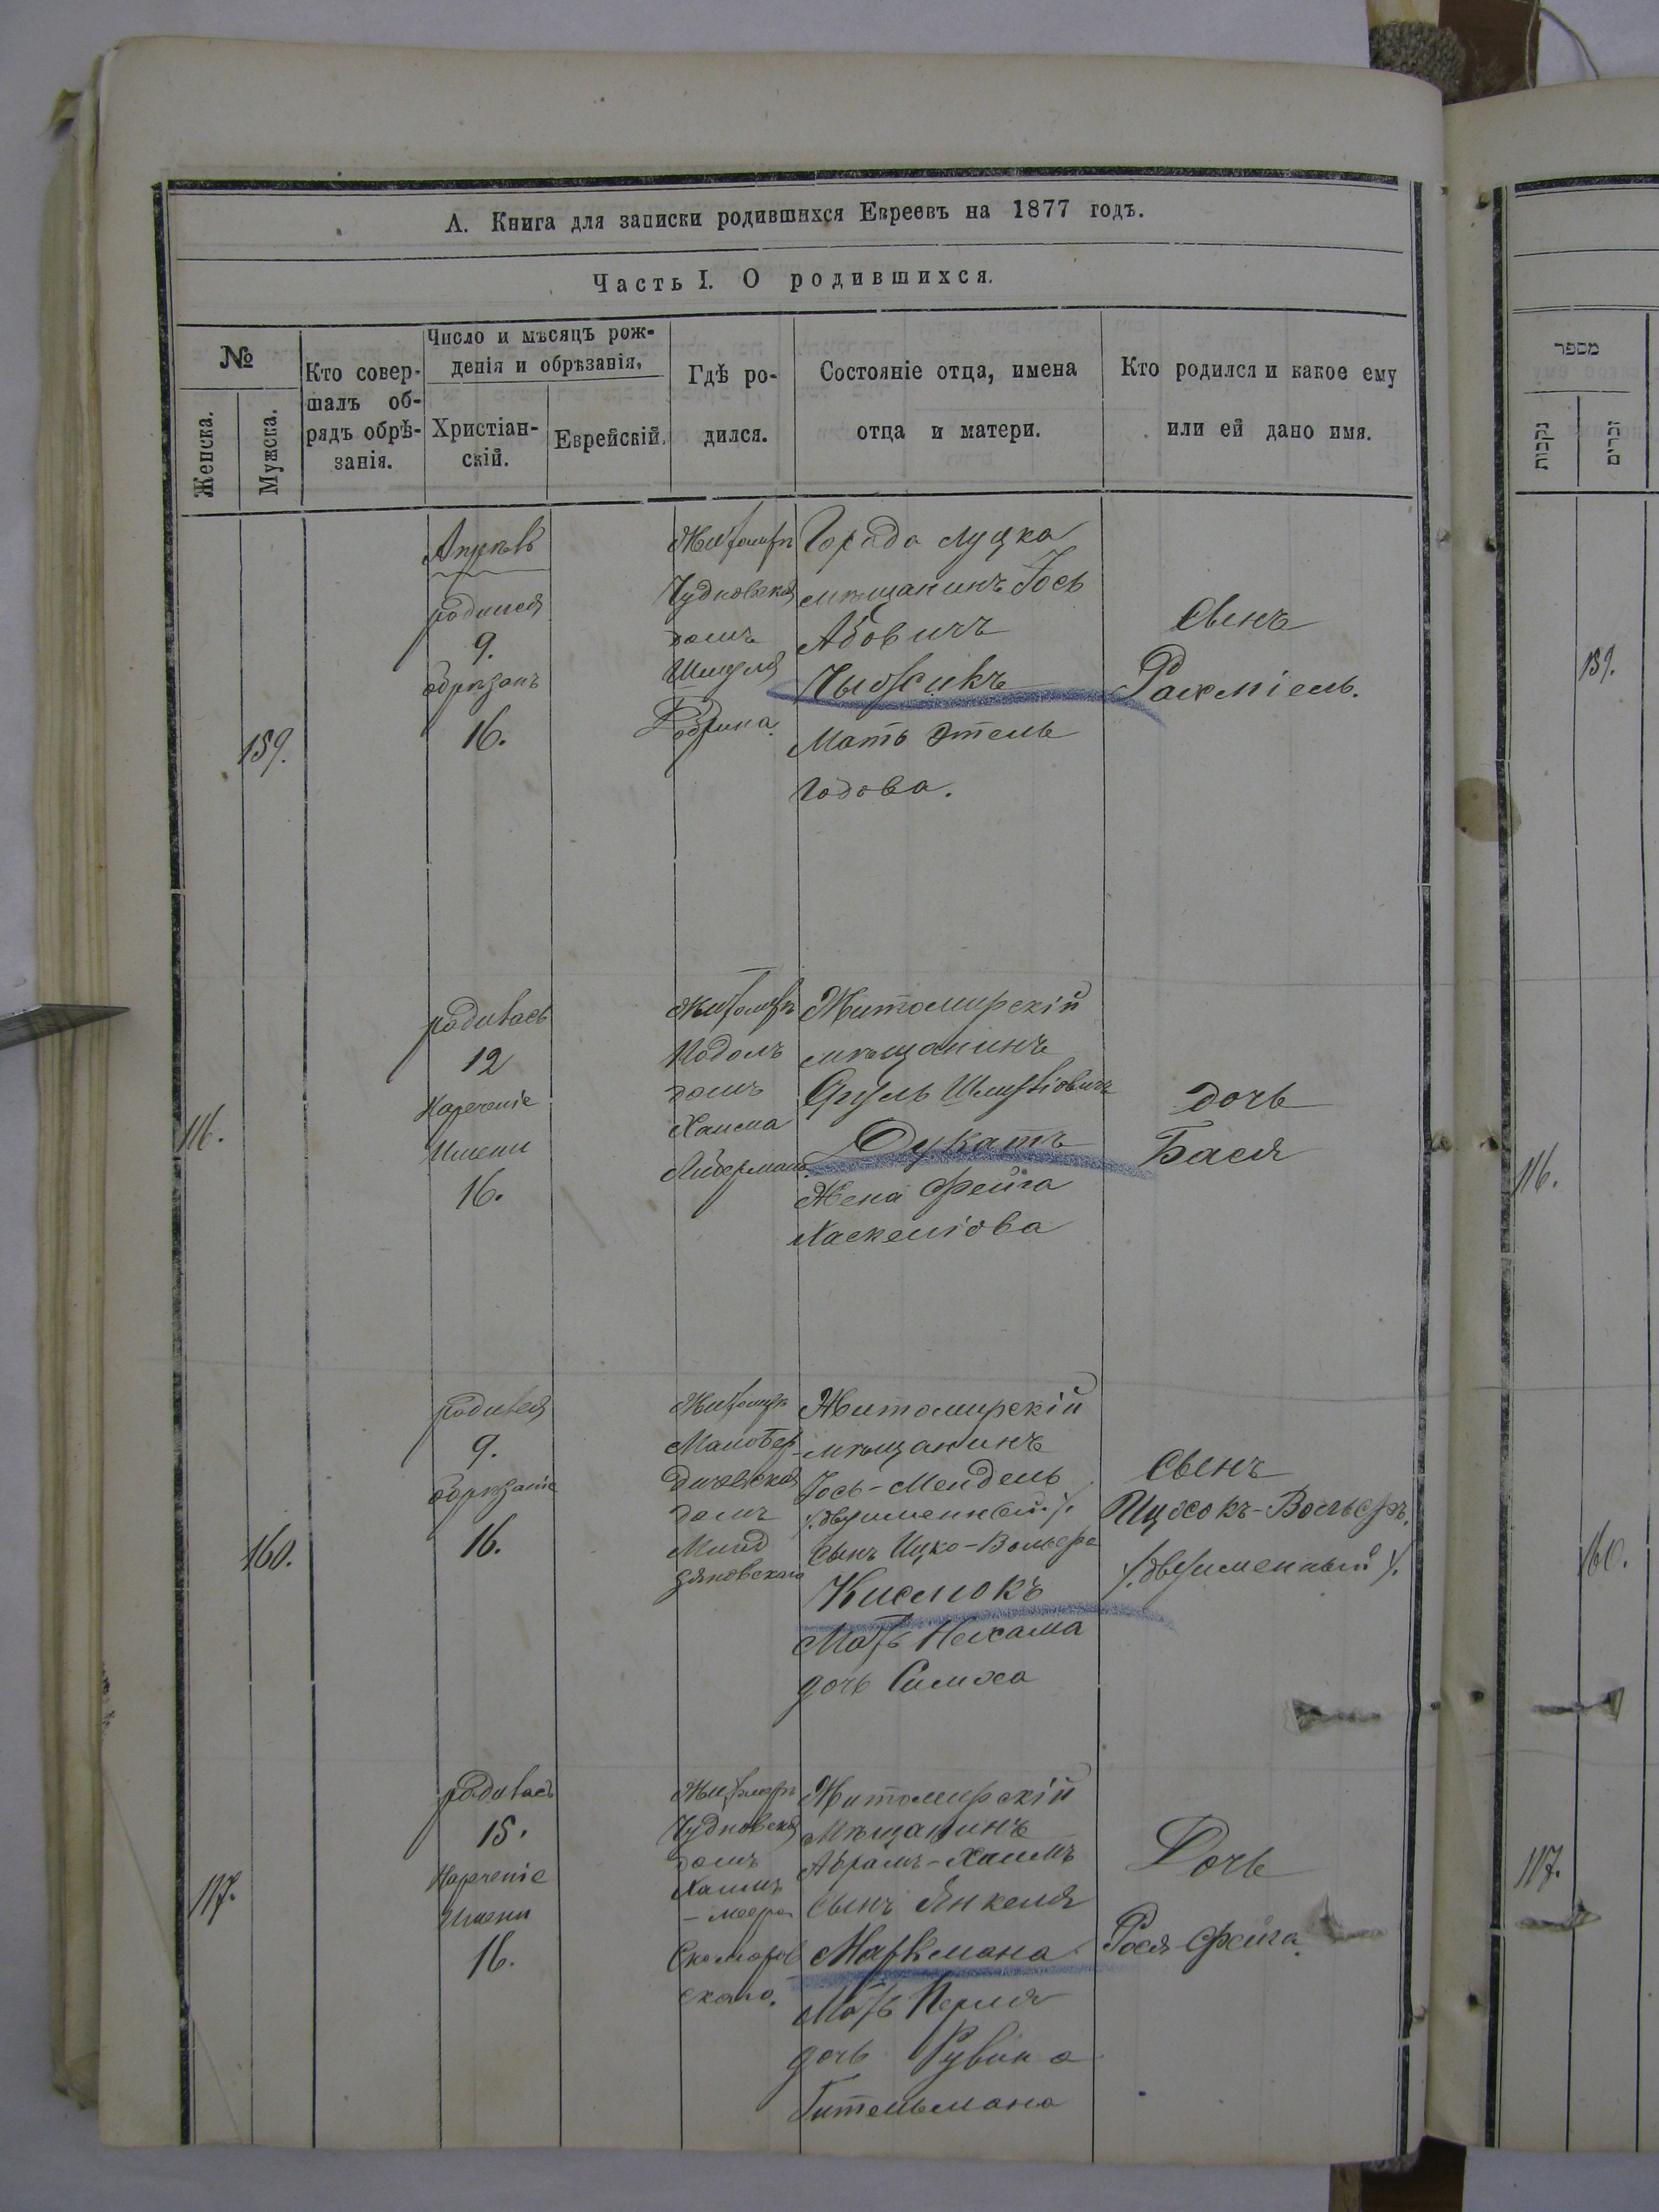 А. Книга для записки родившихся Евреевъ на 1877 годъ.
Часть I. О родившихся.
№
Женска.
Мужска.
Кто совер-
шалъ об-
рядъ обрѣ-
занія.
Число и мѣсяцъ рож-
денія и обрѣзанія,
Христіан-
скій.
Еврейскій.
Гдѣ ро-
дился.
Состояніе отца, имена
отца и матери.
Кто родился и какое ему
или ей дано имя.
159.
родился
9.
обрѣзанъ
16.
Житомиръ
Чудновская
домъ
Шмуля
Города Луцка
мѣщанинъ Іось
Абовичъ
Мать Этель
Годова.
Сынъ
116.
родилась
12
Нареченіе
Имени
16.
Житомиръ
Подолъ
домъ
Хаима
Лидерманъ.
Житомирскій
мѣщанинъ
Дукатъ
Жена Фейга
Хаскеліова
дочь
Бася
160.
родился
9.
обрѣзаніе
16.
Житомиръ
Малобер-
дичевская
домъ
Житомирскій
мѣщанинъ
Іось-Мендель
/.двуименный./.
Сынъ Ицко-Вольфа
Кислюкъ
Мать Нехама
дочь Симха
Сынъ
Ицхокъ-Вольфъ.
/.двуименный/.
117.
родилась
15.
Нареченіе
Имени
16.
Житомиръ
Чудновская
домъ
Хаимъ
-меера
Скоморов
скаго.
Житомирскій
Мѣщанинъ
Абрамъ-Хаимъ
Сынъ Янкеля
Маркмана
Мать Перля
дочь Рувина
Гительмана
Дочь
Рося-Фейга.
מספר
נקבות
זכרים
159.
116.
160.
117.